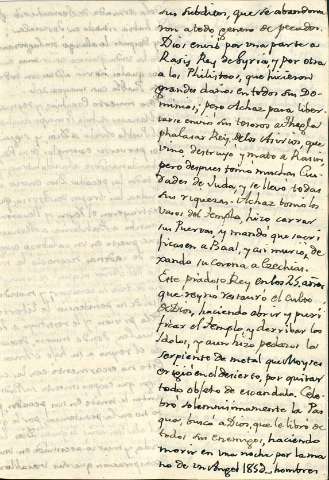 sus Subditos, que se abandona
ron a todo genero de pecados.
Dios envió por una parte a
Rasis, Rey de Syria, y por otra
a los Philisteos, que hicieron
grandes daños en todos sus Do-
minios; pero Achaz para liber
tarse envio sus tesoros a Theglat
phalasar Rey de los Asirios, que
vino destruyó y mató a Rasin
pero despues tomo muchas Ciu
dades de Juda, y se llevo todas
sus riquezas. Achaz tomó los
Vasos del Templo, hizo cerrar
sus Puertas y mandó que sacri
ficasen a Baal, y asi murió, de
xando su corona a Ezechias.
Este piadoso Rey en los 25, años
que reynó restauró el culto
de Dios, haciendo abrir y puri
ficar el Templo, y derribar los
Idolos, y aun hizo pedazos la
serpiente de metal que Moyses
erigió en el desierto, por quitar
todo objeto de escandalo. Cele
bró solemnisimamente la Pas
qua, buscó a Dios, que le libró de
todos sus enemigos, haciendo
morir en una noche por la ma
no de un Angel 185 hombres